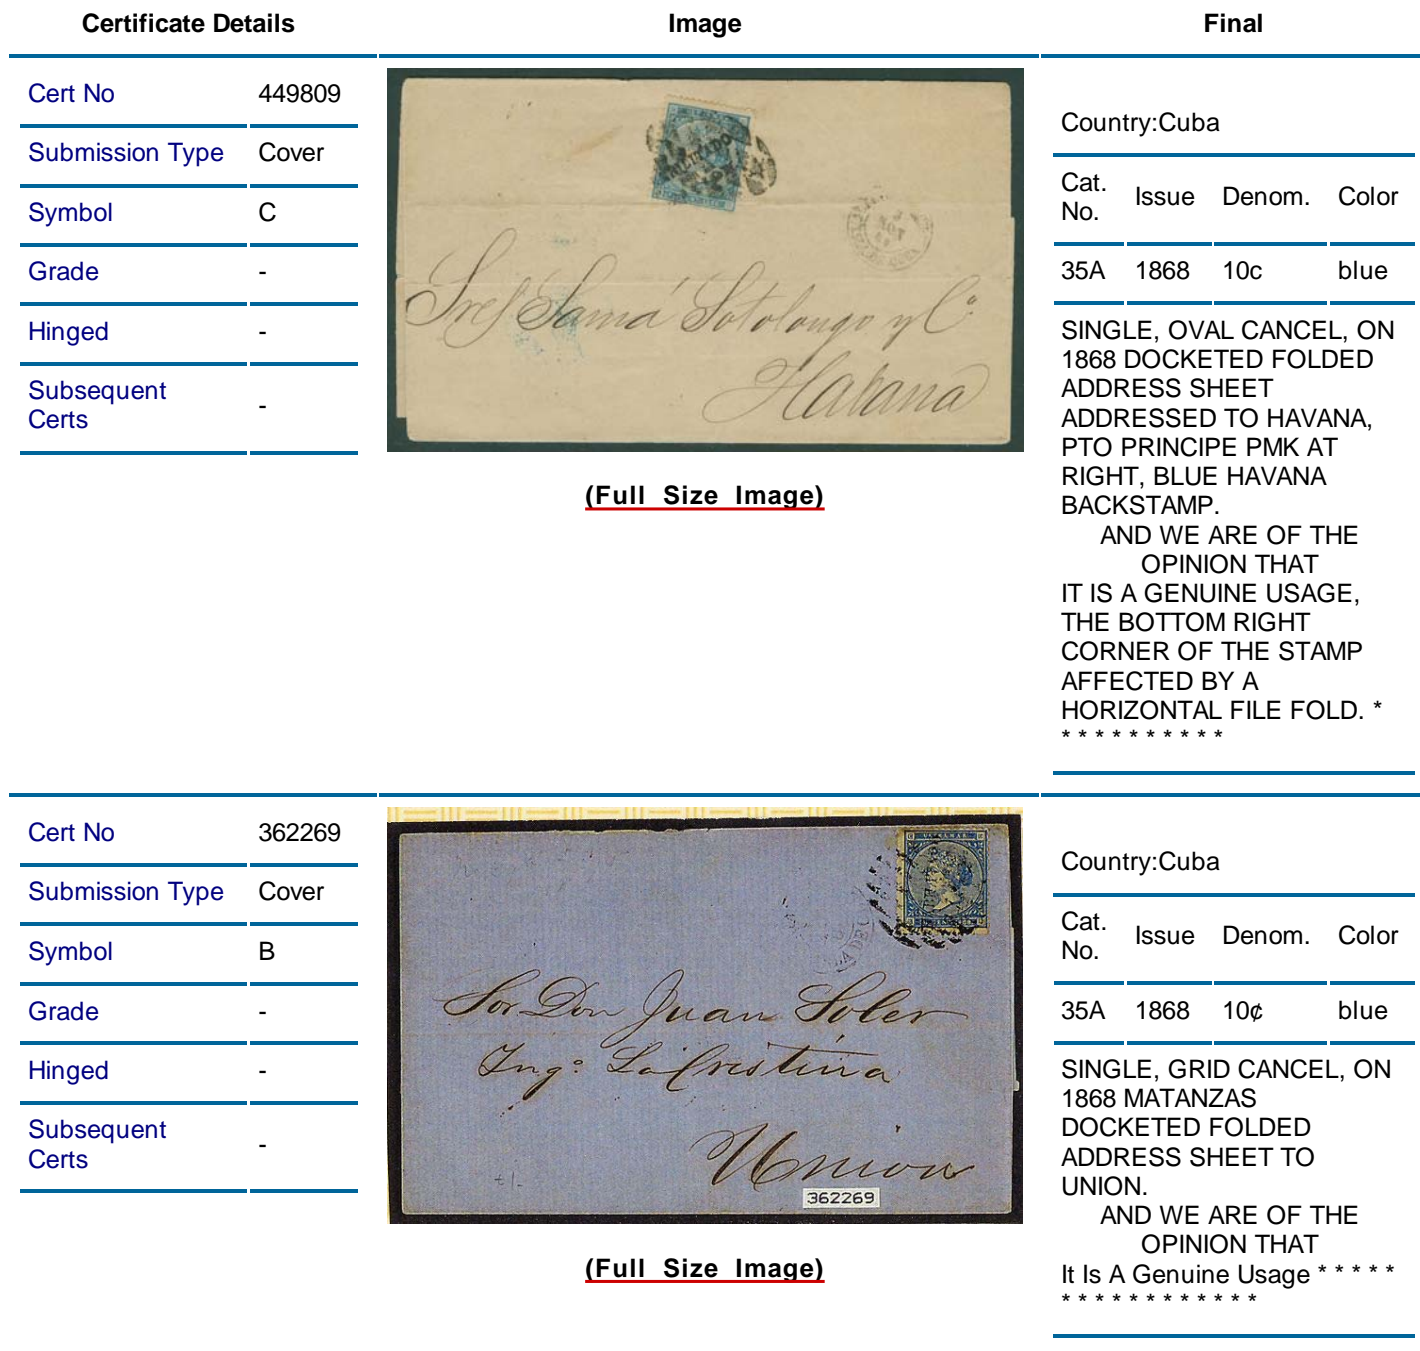 Certificate Details
Image
Final
Cert No 449809
Submission Type Cover
Symbol C
Grade -
Hinged -
Subsequent Certs -
Sres Samá Sotolongo y Cª
Habana
(Full Size Image)
Country:Cuba
Cat. No. Issue Denom. Color
35A 1868 10c blue
SINGLE, OVAL CANCEL, ON
1868 DOCKETED FOLDED
ADDRESS SHEET
ADDRESSED TO HAVANA,
PTO PRINCIPE PMK AT
RIGHT, BLUE HAVANA
BACKSTAMP.
AND WE ARE OF THE
OPINION THAT
IT IS A GENUINE USAGE,
THE BOTTOM RIGHT
CORNER OF THE STAMP
AFFECTED BY A
HORIZONTAL FILE FOLD. *
* * * * * * * * * *
Cert No 362269
Submission Type Cover
Symbol B
Grade -
Hinged -
Subsequent Certs -
ULTRAMAR
Sor Don Juan Soler
Ingº La Cristina
Union
362269
(Full Size Image)
Country:Cuba
Cat. No. Issue Denom. Color
35A 1868 10¢ blue
SINGLE, GRID CANCEL, ON
1868 MATANZAS
DOCKETED FOLDED
ADDRESS SHEET TO
UNION.
AND WE ARE OF THE
OPINION THAT
It Is A Genuine Usage * * * * *
* * * * * * * * * * * *